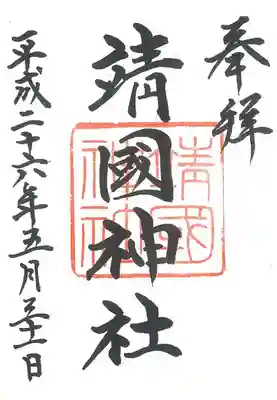 奉拝
靖國神社
平成二十六年五月三十一日
靖國
神社